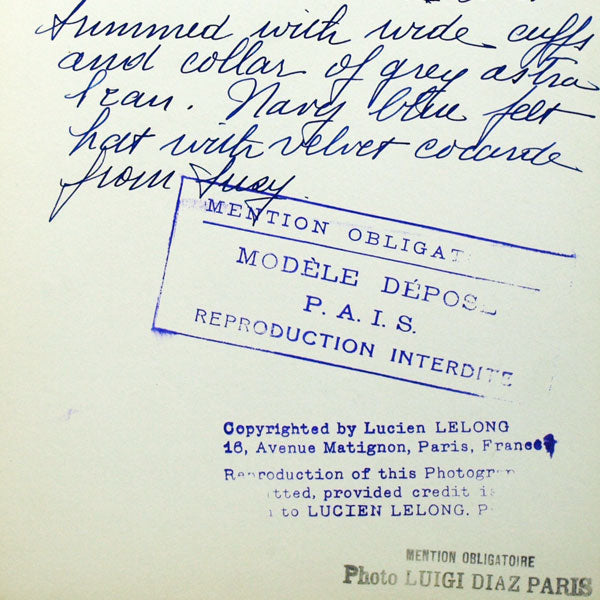 trimmed with wide cuffs
and collar of grey astra
kan. Navy blue felt
hat with velvet cocarde
from Suzy.
MENTION OBLIGAT
MODÈLE DÉPOS
P. A. I. S.
REPRODUCTION INTERDITE
Copyrighted by Lucien LELONG
16, Avenue Matignon, Paris, France
Reproduction of this Photogra
tted, provided credit is
to LUCIEN LELONG. P
MENTION OBLIGATOIRE
Photo LUIGI DIAZ PARIS